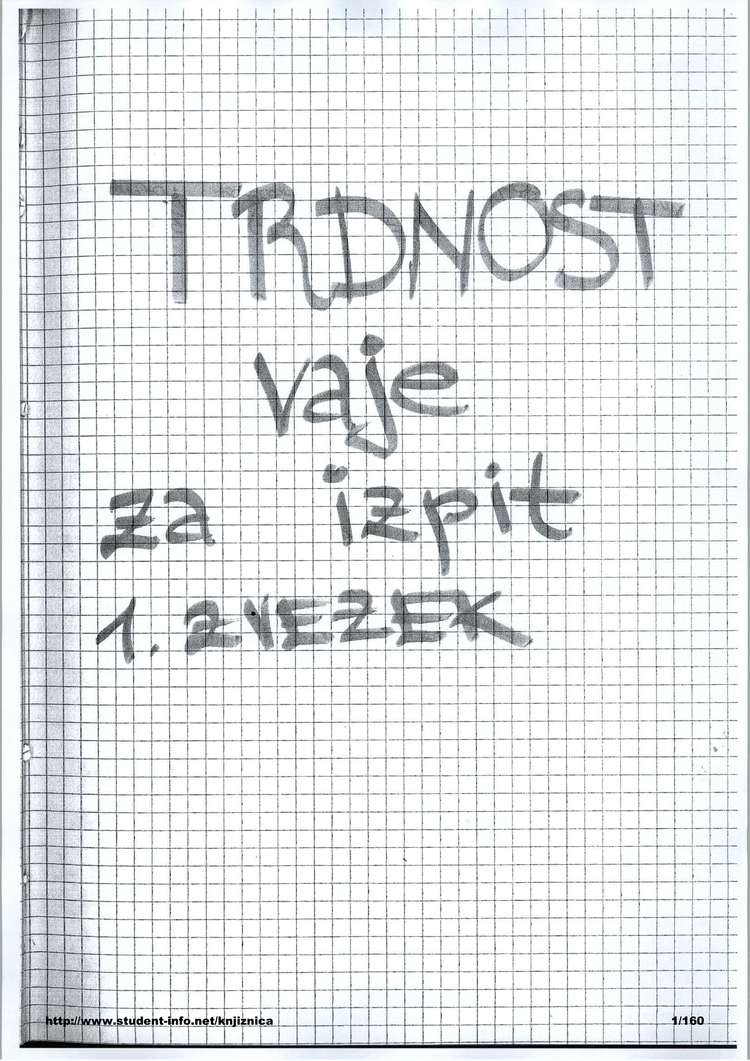 TRDNOST
vaje
za izpit
1. ZVEZEK
http://www.student-info.net/knjiznica 1/160